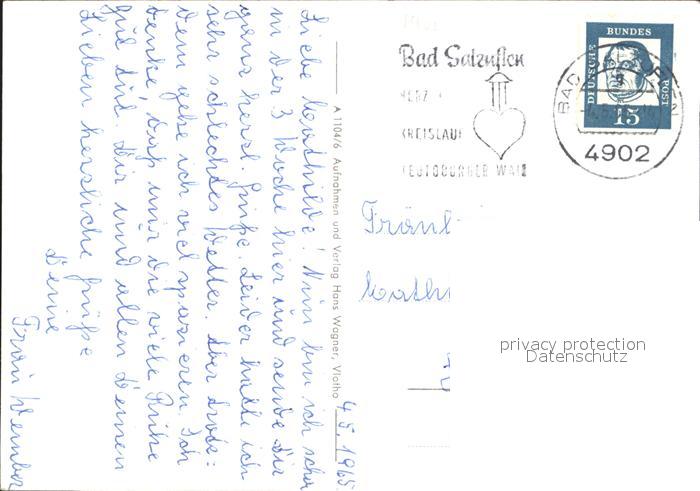 Liebe Mathilde! Nun bin ich schon
in der 3 Woche hier und sende Dir
ganz herzl. Grüße. Leider hatte ich
sehr schlechtes Wetter. Aber trotz:
dem gehe ich viel spazieren. Ich
denke, daß mir die viele Ruhe
gut tut. Dir und allen Deinen
Lieben herzliche Grüße
Deine
Frau
4.5.1965.
A 1104/6 Aufnahmen und Verlag Hans Wagner, Vlotho
Bad Salzuflen
HERZ
KREISLAUF
TEUTOBURGER WALD
BAD
4902
DEUTSCHE
BUNDES
POST
15
Fräul
Math
privacy protection
Datenschutz